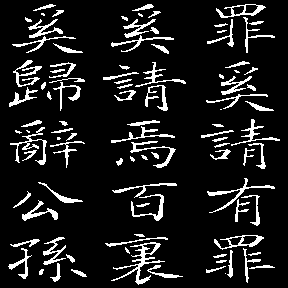 罪奚請有罪
奚請焉百裏
奚歸辭公孫